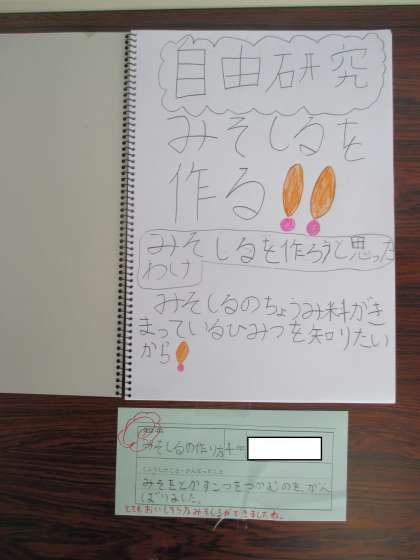 自由研究
みそしるを
作る!!
みそしるを作ろうと思った
わけ
みそしるのちょうみ料がき
まっているひみつを知りたい
から!
みそしるの作り方
みそをとかすこつをつかむのを、がん
ばりました。
とてもおいしそうなみそしるができましたね。